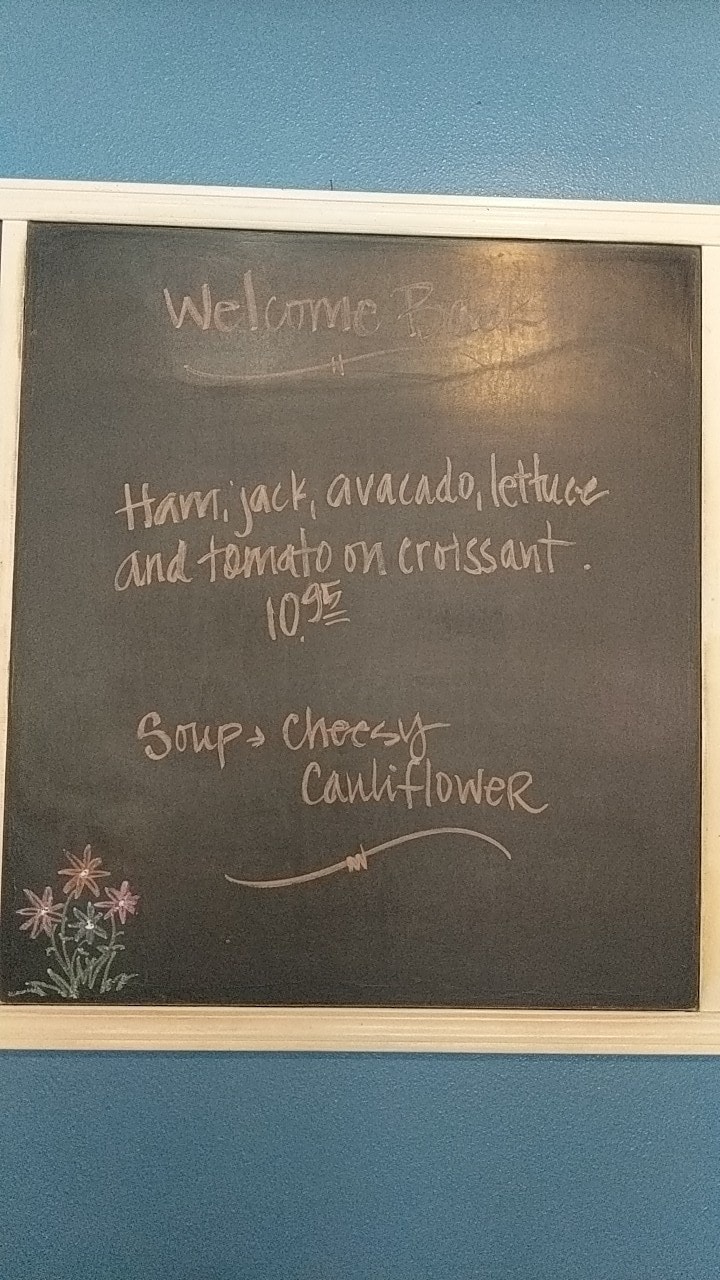 Welcome Back
Ham, jack, avacado, lettuce
and tomato on croissant.
10.95
Soup → Cheesy
Cauliflower